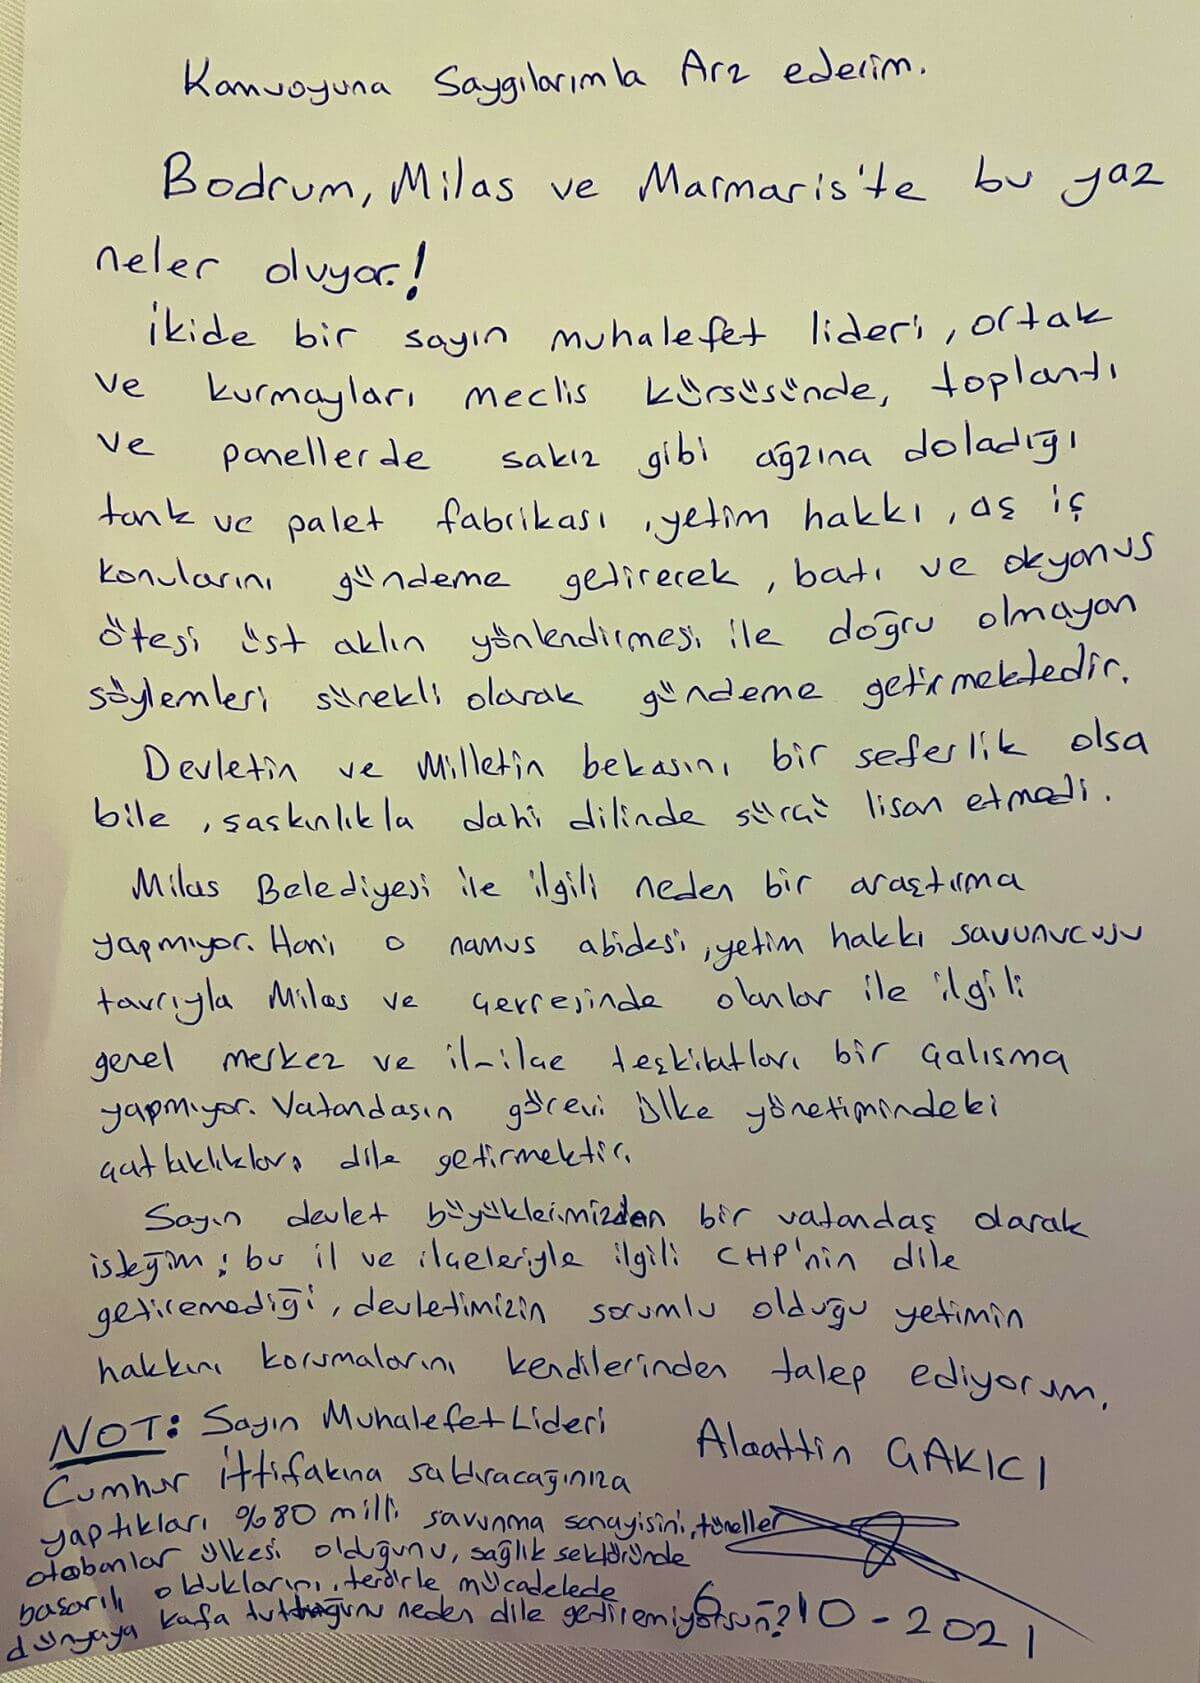 Kamuoyuna Saygılarımla Arz ederim.
Bodrum, Milas ve Marmaris'te bu yaz
neler oluyor.!
İkide bir sayın muhalefet lideri, ortak
ve kurmayları meclis kürsüsünde, toplantı
ve panellerde sakız gibi ağzına doladığı
tank ve palet fabrikası, yetim hakkı, aş iş
konularını gündeme getirecek, batı ve okyonus
ötesi üst aklın yönlendirmesi ile doğru olmayan
söylemleri sürekli olarak gündeme getirmektedir.
Devletin ve Milletin bekasını bir seferlik olsa
bile, saskınlıkla dahi dilinde sürçü lisan etmedi.
Milas Belediyesi ile ilgili neden bir araştırma
yapmıyor. Hani o namus abidesi, yetim hakkı savunucusu
tavrıyla Milas ve çevresinde olanlar ile ilgili
genel merkez ve il-ilçe teşkilatları bir çalışma
yapmıyor. Vatandaşın görevi ülke yönetimindeki
çatlaklıkları dile getirmektir.
Sayın devlet büyüklerimizden bir vatandaş olarak
isteğim; bu il ve ilçeleriyle ilgili CHP'nin dile
getiremediği, devletimizin sorumlu olduğu yetimin
hakkını korumalarını kendilerinden talep ediyorum.
NOT: Sayın Muhalefet Lideri
Cumhur İttifakına saldıracağınıza
yaptıkları %80 milli savunma sanayisini, tüneller
otobanlar ülkesi olduğunu, sağlık sektöründe
başarılı olduklarını, terörle mücadelede
dünyaya kafa tuttuğunu neden dile getiremiyorsun?
Alaattin ÇAKICI
6-10-2021